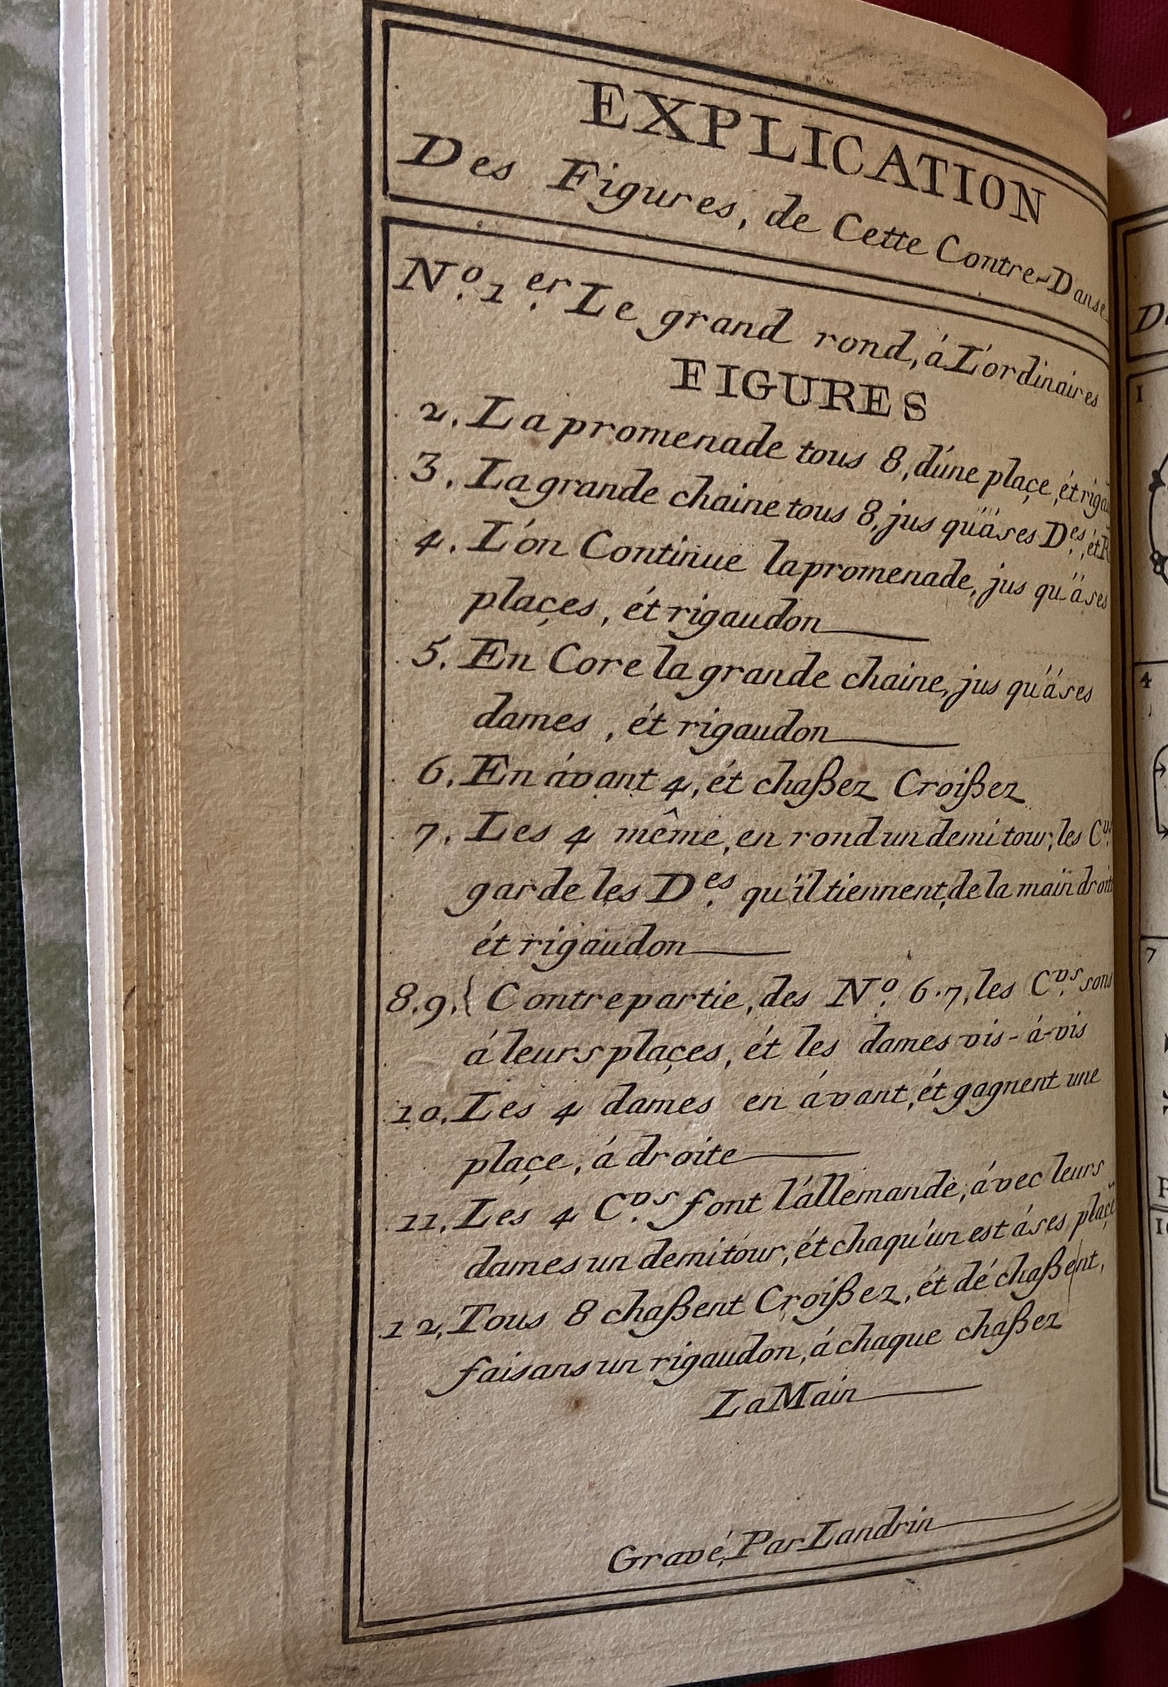 EXPLICATION
Des Figures, de Cette Contre-Danse
N.º 1.er Le grand rond, á L'ordinaires
FIGURES
2. La promenade tous 8, d'úne plaçe, ét
3. La grande chaine tous 8, jus qu'äses D.es, ét R
4. L'ón Continue la promenade, jus qu'äses
plaçes, ét rigaudon
5. En Core la grande chaine, jus qu'áses
dames, ét rigaudon
6. En ávant 4, ét chaßez Croißez
7. Les 4 même, en rond un demi tour, les
garde les D.es qu'il tiennent, de la main droite
ét rigaudon
8.9.{ Contre partie, des N.º 6.7, les C.vs sons
á leurs plaçes, ét les dames vis-á-vis
10. Les 4 dames en ávant, ét gagnent une
plaçe, á droite
11. Les 4 C.vs font l'állemande, ávec leurs
dames un demi tour, ét chaqu'un est áses
12. Tous 8 chaßent Croißez, ét dé chaßent,
faisans un rigaudon, á chaque chaßez
La Main
Gravé, Par Landrin
D
1
8
4
7